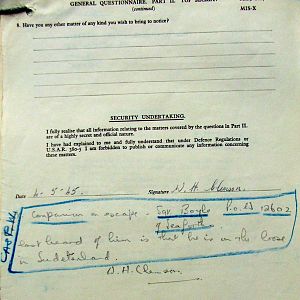 GENERAL QUESTIONNAIRE, PART II. TOP SECRET
(continued)
MIS-X
8. Have you any other matter of any kind you wish to bring to notice?
SECURITY UNDERTAKING.
I fully realise that all information relating to the matters covered by the questions in Part II.
are of a highly secret and official nature.
I have had explained to me and fully understand that under Defence Regulations or
U.S.A.R. 380-5 I am forbidden to publish or communicate any information concerning
these matters.
Date 4-5-45. Signature
Companion on escape - Sgt Boyle P.o.W 12602
of Seaforth
last heard of him is that he is on the loose
in Sudetenland.